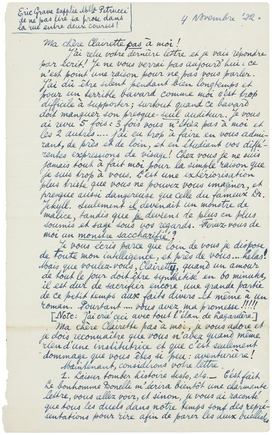 Eric Grave supplie Mlle Petrucci
de ne pas lire sa prose dans
la rue entre deux courses!
4 Novembre
Ma chère Clairette pas à moi!
J'ai relu votre dernière lettre et je vais répondre
par écrit! Je ne vous verrai pas aujourd'hui: ce
n'est point une raison pour ne pas vous parler.
J'ai dû être silent pendant bien longtemps et
pour un terrible bavard comme moi c'est trop
difficile à supporter; surtout quand ce bavard
doit manquer son presque seul auditeur. Je vous
ai vu 5 fois: 3 fois vous n'étiez pas à moi et
les 2 autres.... J'ai eu trop à faire en vous admi-
rant, de près et de loin, et en étudiant vos diffé-
rentes expressions de visage! Chez vous je ne suis
jamais tout à fait moi pour la simple raison que
je suis trop à vous. C'est une extériorisation
plus triste que vous ne pouvez vous imaginer, et
presque aussi dangereuse que celle du fameux Dr.
Jekyll. Seulement il devenait un monstre de
malice, tandis que je deviens de plus en plus
soumis et sage sous vos regards. Ferez-vous de
moi un monstre saccharifié?
Je vous écris parce que loin de vous je dispose
de toute mon intelligence, et près de vous... hélas!
Mais que voulez-vous, Clairette, quand un amour
de tout le jour doit être synthétisé en 60 minutes,
il est dur de sacrifier encore une grande partie
de ce petit temps aux faits divers et même à un
roman. Pourtant — vous avez ma promesse!
[Note: J'ai crié ceci avec tout l'élan de Lagardère.]
Ma chère Clairette pas à moi, je vous adore et
je dois reconnaître que vous n'avez quand même
rien d'une institutrice et que c'est seulement
dommage que vous êtes si peu: aventurière!
Maintenant, considérons votre lettre.
1. L'assez honteuse histoire est fait.
Le bonhomme Bonelli m'écrira bientôt une clémente
lettre, vous allez voir, et sinon, je vous ai raconté
que tous les duels dans notre temps sont des repré-
sentations pour rire afin de parer les deux ouailles